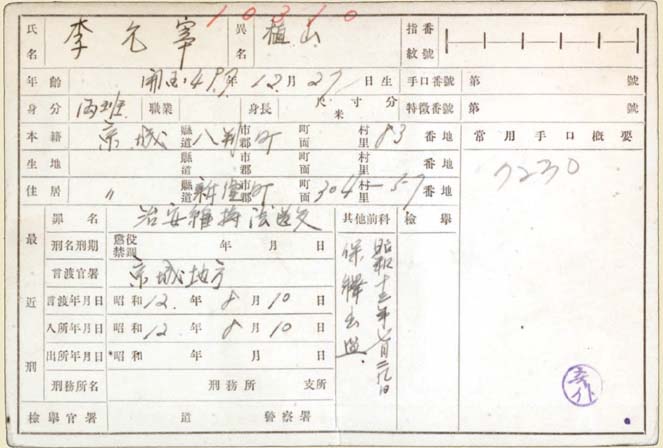 10310
氏名 李允宰 異名 桓山 指紋番號
年齡 開国497年12月27日生 手口番號 第 號
身分 両班 職業 身長 尺寸分 米 特徵番號 第 號
本籍 京城 縣道 八判町 市郡 町面 村里 83 番地 常用手口概要
生地 縣道 市郡 町面 村里 7230
住居 〃 縣道 新堂町 市郡 町面 304-57 村里 番地
最近刑
罪名 治安維持法違反 其他前科 檢擧
刑名刑期 懲役 禁錮 年 月 日
言渡官署 京城地方
言渡年月日 昭和12年8月10日
入所年月日 昭和12年8月10日
出所年月日 昭和 年 月 日
刑務所名 刑務所 支所
檢擧官署 道 警察署
昭和十三年七月二九日
保釋出監